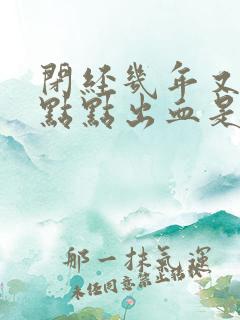 閉經幾年又
點點出血是
那一抹氣運
未經同意禁止转载